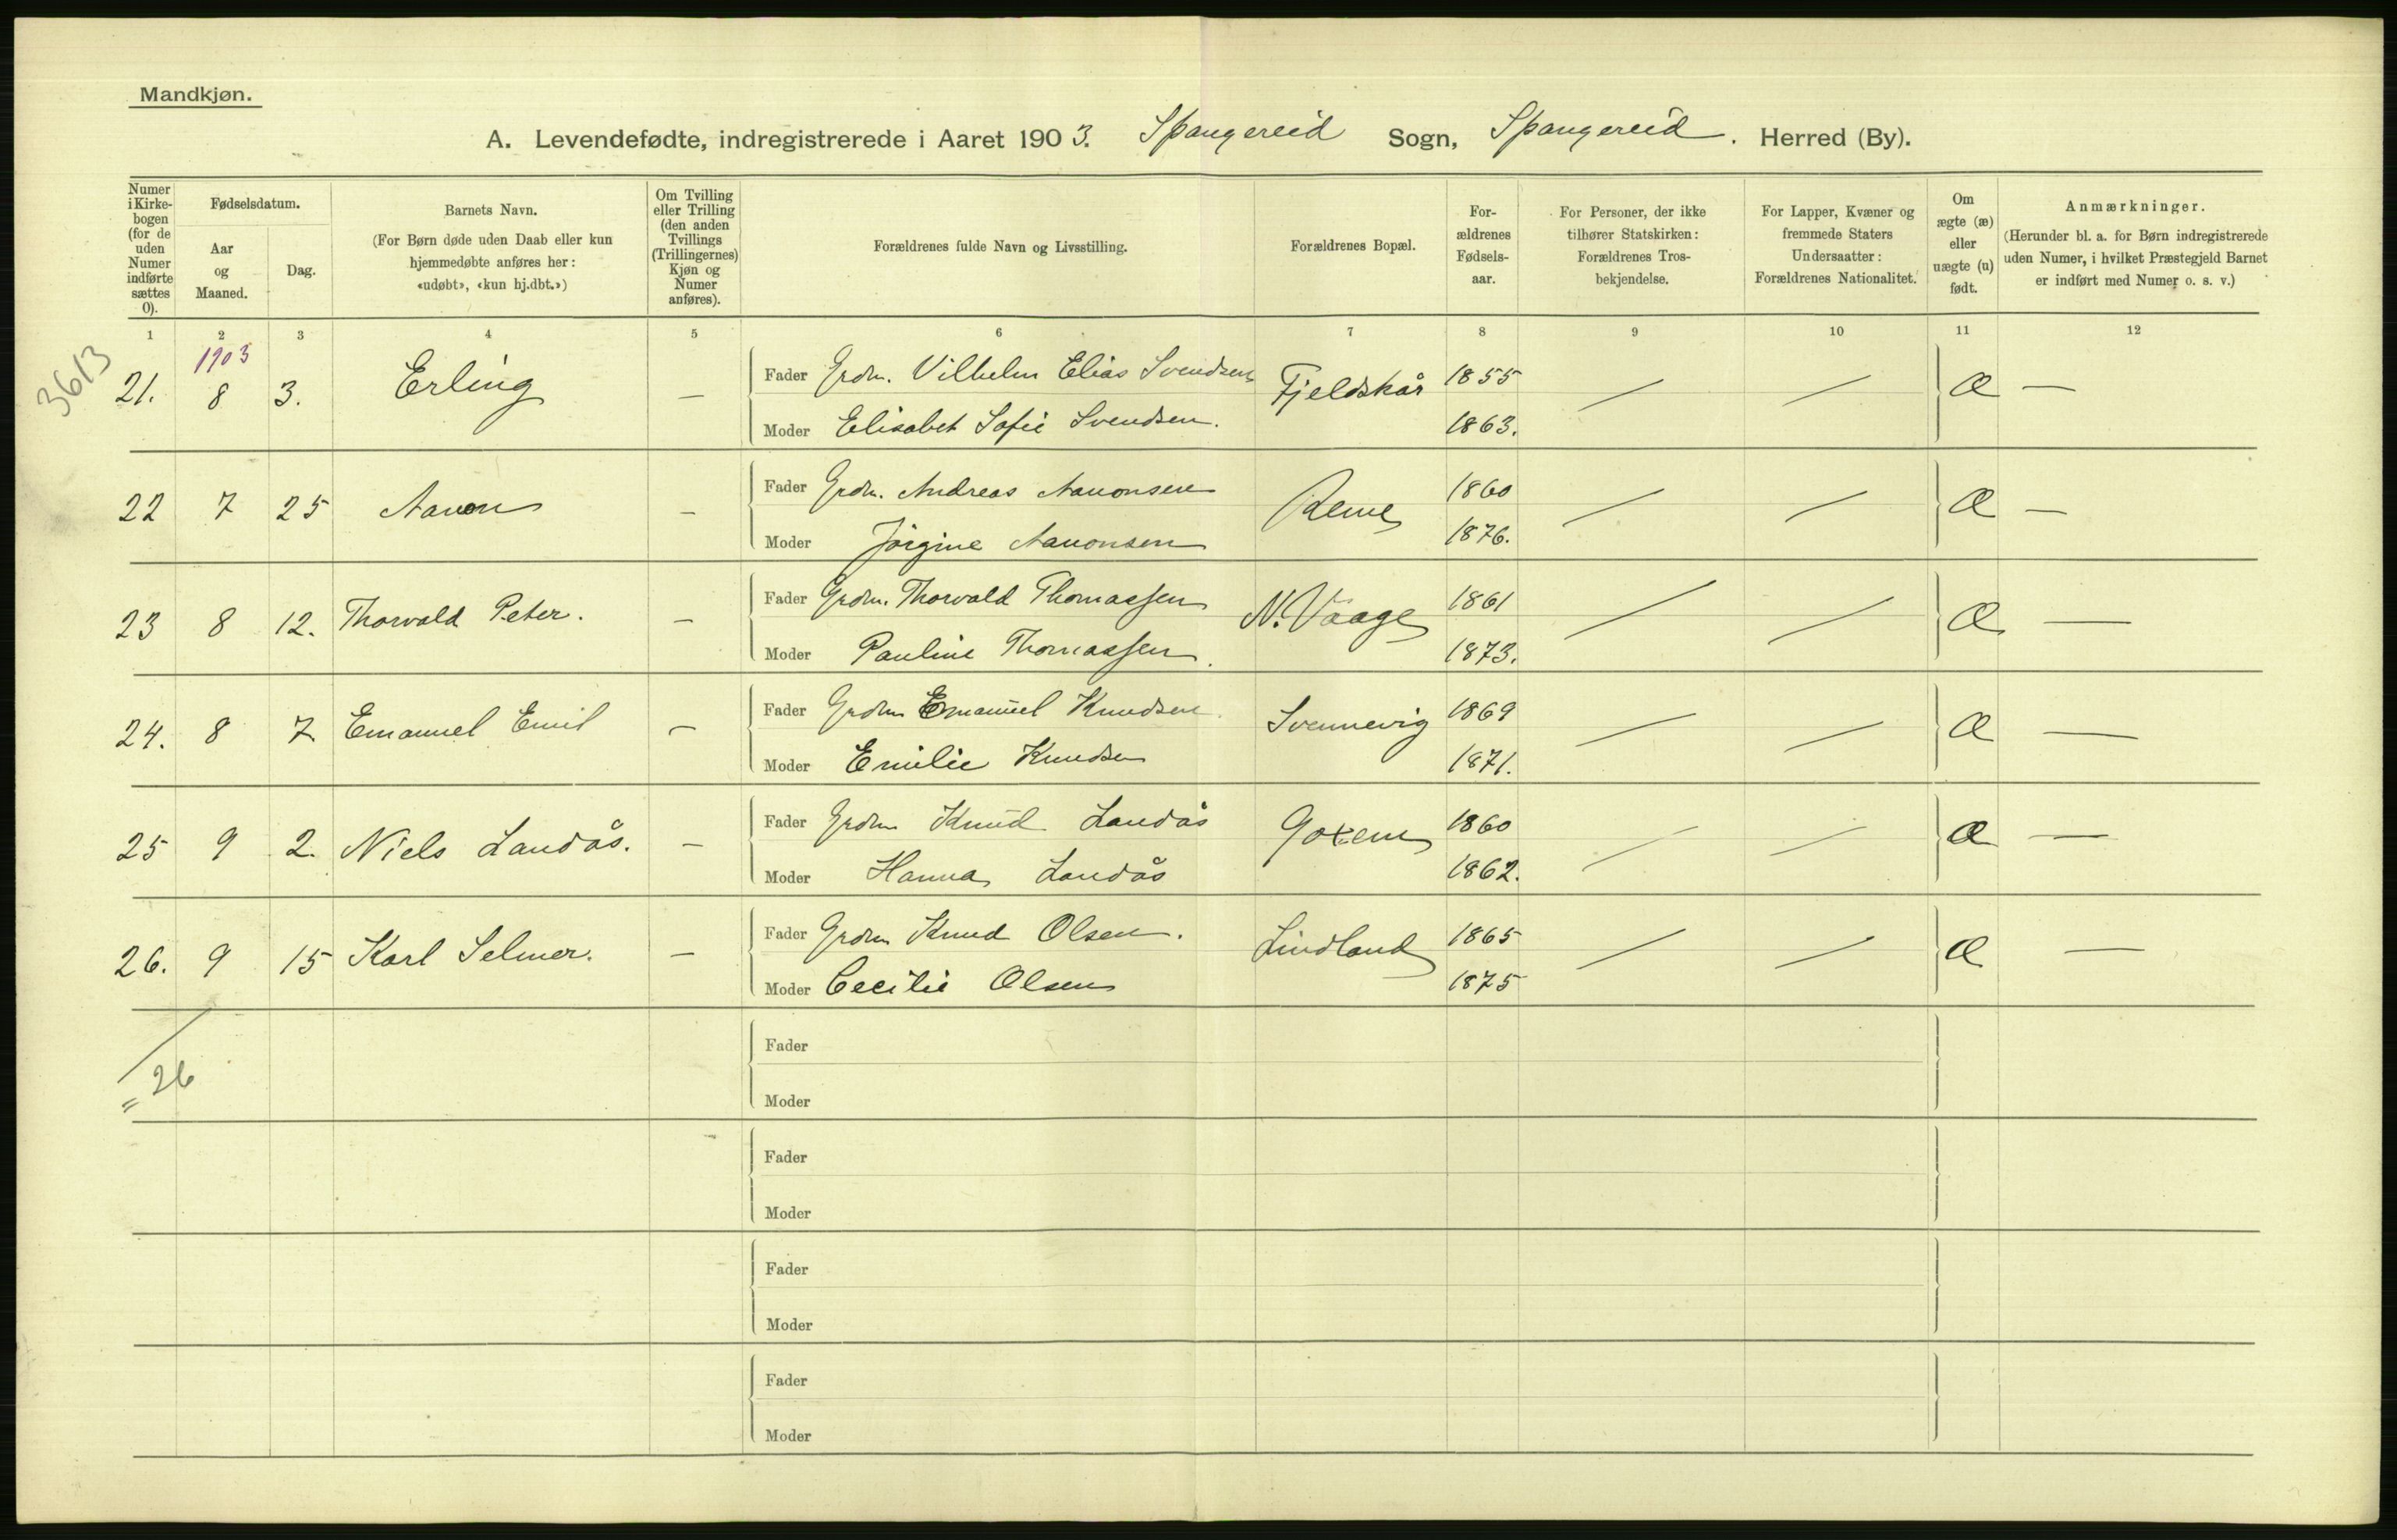 Mandkjøn.
A. Levendefødte, indregistrerede i Aaret 1903. Spangereid Sogn, Spangereid. Herred (By).
Numer i Kirkebogen (for de uden Numer indførte sættes 0).
Fødselsdatum.
Aar og Maaned.
Dag.
Barnets Navn.
(For Børn døde uden Daab eller kun hjemmedøbte anføres her: «udøbt», «kun hj.dbt.»)
Om Tvilling eller Trilling (den anden Tvillings (Trillingernes) Kjøn og Numer anføres).
Forældrenes fulde Navn og Livsstilling.
Forældrenes Bopæl.
Forældrenes Fødselsaar.
For Personer, der ikke tilhører Statskirken: Forældrenes Trosbekjendelse.
For Lapper, Kvæner og fremmede Staters Undersaatter: Forældrenes Nationalitet.
Om ægte (æ) eller uægte (u) født.
Anmærkninger.
(Herunder bl. a. for Børn indregistrerede uden Numer, i hvilket Præstegjeld Barnet er indført med Numer o. s. v.)
1 2 3 4 5 6 7 8 9 10 11 12
3613
1903
21. 8 3. Erling — Fader Grdm. Vilhelm Elias Svendsen Fjeldskår 1855 / / Æ —
Moder Elisabet Sofie Svendsen. 1863.
22 7 25 Aanon — Fader Grdm. Andreas Aanonsen Reme 1860 / / Æ —
Moder Jörgine Aanonsen 1876.
23 8 12. Thorvald Peter. — Fader Grdm. Thorvald Thomassen N. Vaage 1861 / / Æ —
Moder Pauline Thomassen. 1873.
24. 8 7. Emanuel Emil — Fader Grdm Emanuel Knudsen. Svennevig 1869 / / Æ —
Moder Emilie Knudsen 1871.
25 9 2. Niels Landås. — Fader Grdm Knud Landås Goxem 1860 / / Æ —
Moder Hanna Landås 1862.
26. 9 15 Karl Selmer. — Fader Grdm Knud Olsen. Lindland 1865 / / Æ —
Moder Cecilie Olsen 1875
Fader
26
Moder
Fader
Moder
Fader
Moder
Fader
Moder